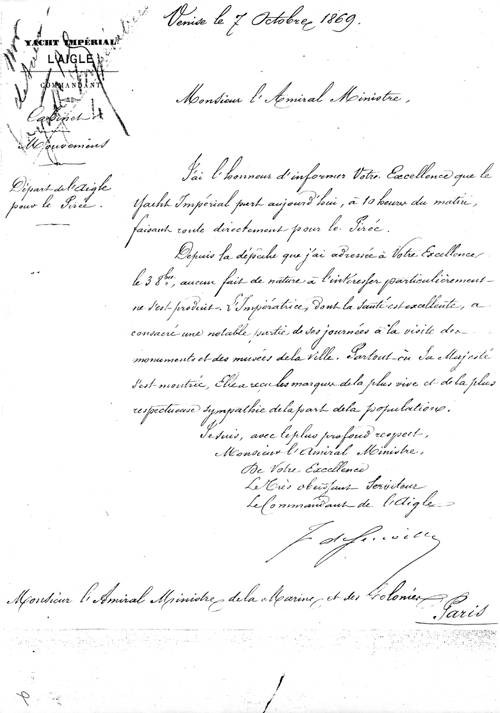 Venise le 7 Octobre 1869.
YACHT IMPÉRIAL
L'AIGLE
COMMANDANT
Cabinet
Mouvements
Départ de l'Aigle
pour le Pirée.
Monsieur l'Amiral Ministre,
J'ai l'honneur d'informer Votre Excellence que le
Yacht Impérial part aujourd'hui, à 10 heures du matin,
faisant route directement pour le Pirée.
Depuis la dépêche que j'ai adressée à Votre Excellence
le 3 8bre, aucun fait de nature à l'intéresser particulièrement
ne s'est produit. L'Impératrice, dont la santé est excellente, a
consacré une notable partie de ses journées à la visite des
monuments et des musées de la Ville. Partout où Sa Majesté
s'est montrée, Elle a reçu les marques de la plus vive et de la plus
respectueuse sympathie de la part de la population.
Je suis, avec le plus profond respect,
Monsieur l'Amiral Ministre,
De Votre Excellence
Le Très obéissant Serviteur
Le Commandant de l'Aigle
Monsieur l'Amiral Ministre de la Marine et des Colonies
Paris